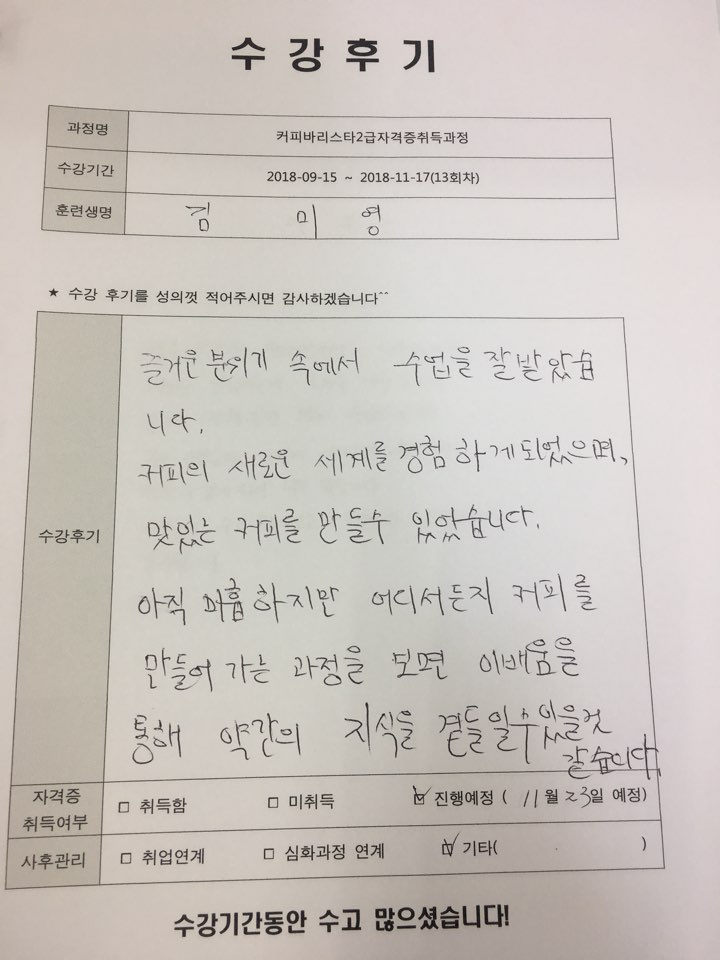 수강후기
과정명 커피바리스타2급자격증취득과정
수강기간 2018-09-15 ~ 2018-11-17(13회차)
훈련생명 김 미 영
★ 수강 후기를 성의껏 적어주시면 감사하겠습니다^^
즐거운 분위기 속에서 수업을 잘받았습
니다.
커피의 새로운 세계를 경험 하게되었으며,
맛있는 커피를 만들수 있었습니다.
수강후기
아직 미흡하지만 어디서든지 커피를
만들어 가는 과정을 보면 이배움을
통해 약간의 지식을 곁들일수있을것
같습니다.
자격증
취득여부
□ 취득함 □ 미취득 ☑ 진행예정 ( 11월 23일 예정)
사후관리 □ 취업연계 □ 심화과정 연계 ☑ 기타( )
수강기간동안 수고 많으셨습니다!